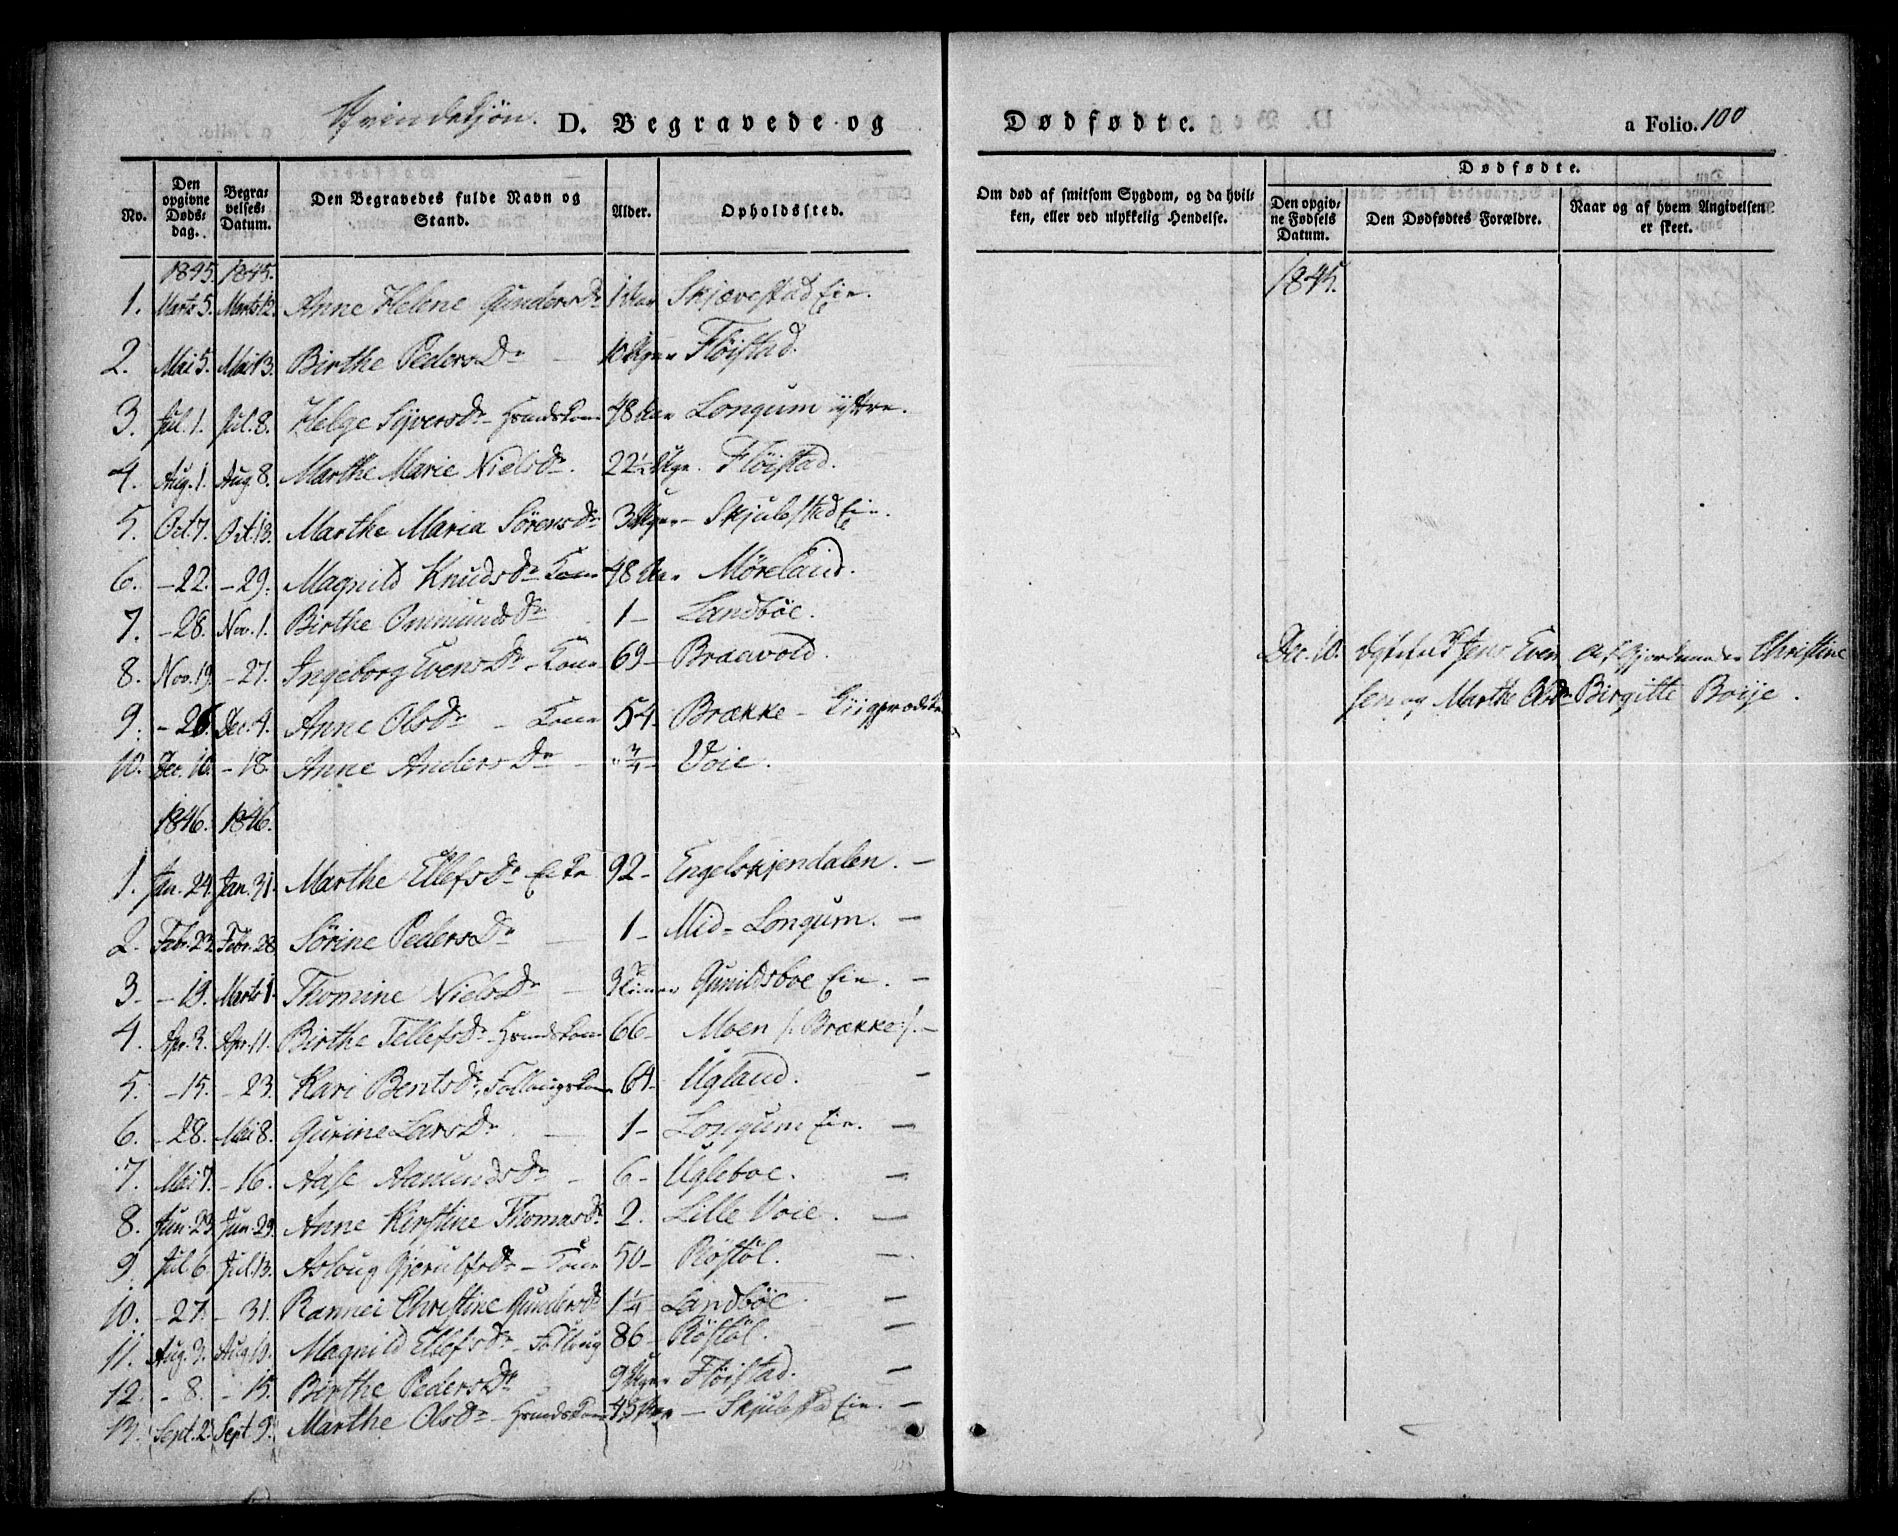 Qvindekjøn. D. Begravede og Dødfødte. a Folio. 100
No. Den opgivne Døds-dag. Begra-velses-Datum. Den Begravedes fulde Navn og Stand. Alder. Opholdssted. Om død af smitsom Sygdom, og da hvil-ken, eller ved ulykkelig Hendelse. Dødfødte. Den opgiv-ne Fødsels Datum. Den Dødfødtes Forældre. Naar og af hvem Angivelsen er skeet.
1845. 1845. 1845.
1. Marts 5. Marts 12. Anne Helene Gundersdr 1 Aar Skjævestad Eie.
2. Mai 5. Mai 13. Birthe Pedersdr — 10 Uger Fløistad.
3. Jul. 1. Jul. 8. Helge Syversdr 48 Aar Longum ystre.
4. Aug. 1. Aug 8. Marthe Marie Nielsdr. 22½ Uge. Fløistad.
5. Oct. 7. Oct. 13. Marthe Maria Sørensdr 3 Uger — Skjulestad Eie.
6. — 22. — 29. Magnild Knudsdr Kone 48 Aar Møreland.
7. — 28. Nov. 1. Birthe Omundsdr 1 — Landbøe.
8. Nov. 19. — 27. Ingeborg Evensdr — Kone 69 — Braavold.
Dec. 10. Jens Even Af Gjordemoder Christine
sen og Marthe Olsdr Birgitte Boije.
9. — 26. Dec. 4. Anne Olsdr — Kone 54 — Brække —
10. Dec. 10. — 18. Anne Andersdr — " ¾ — Voie.
1846. 1846.
1. Jan. 24. Jan. 31. Marthe Ellefsdr 92 — Engelskjendalen. —
2. Febr. 22. Febr. 28 Sørine Pedersdr — 1 — Mid-Longum. —
3. — 19. Marts 1. Thomine Nielsdr — 3 Gunildsboe Eie. —
4. Apr. 3. Apr. 11. Birthe Tellefsdr 66 Moen /: Brække :/. —
5. — 15. — 23. Kari Bentsdr, 64 — Ugland. —
6. — 28. Mai 8. Gurine Larsdr. — 1 — Longum Eie. —
7. Mai 7. — 16. Aase Aanundsdr — 6 — Ugleboe. —
8. Jun. 23. Jun. 29. Anne Kirstine Thomasdr 2. Lille Voie. —
9. Jul 6. Jul. 13. Aslaug Gjerulfsdr — Kone 50 — Røstøl. —
10. — 27. — 31. Rannei Christine Gundersdr 1¼ — Landbøe. —
11. Aug. 3. Aug 10. Magnild Ellefsdr — 86 — Røstøl. —
12. — 8. — 15. Birthe Pedersdr 9 Uger Fløistad. —
13. Sept. 2. Sept 9. Marthe Olsdr — 45 Aar — Skjulestad Eie. —